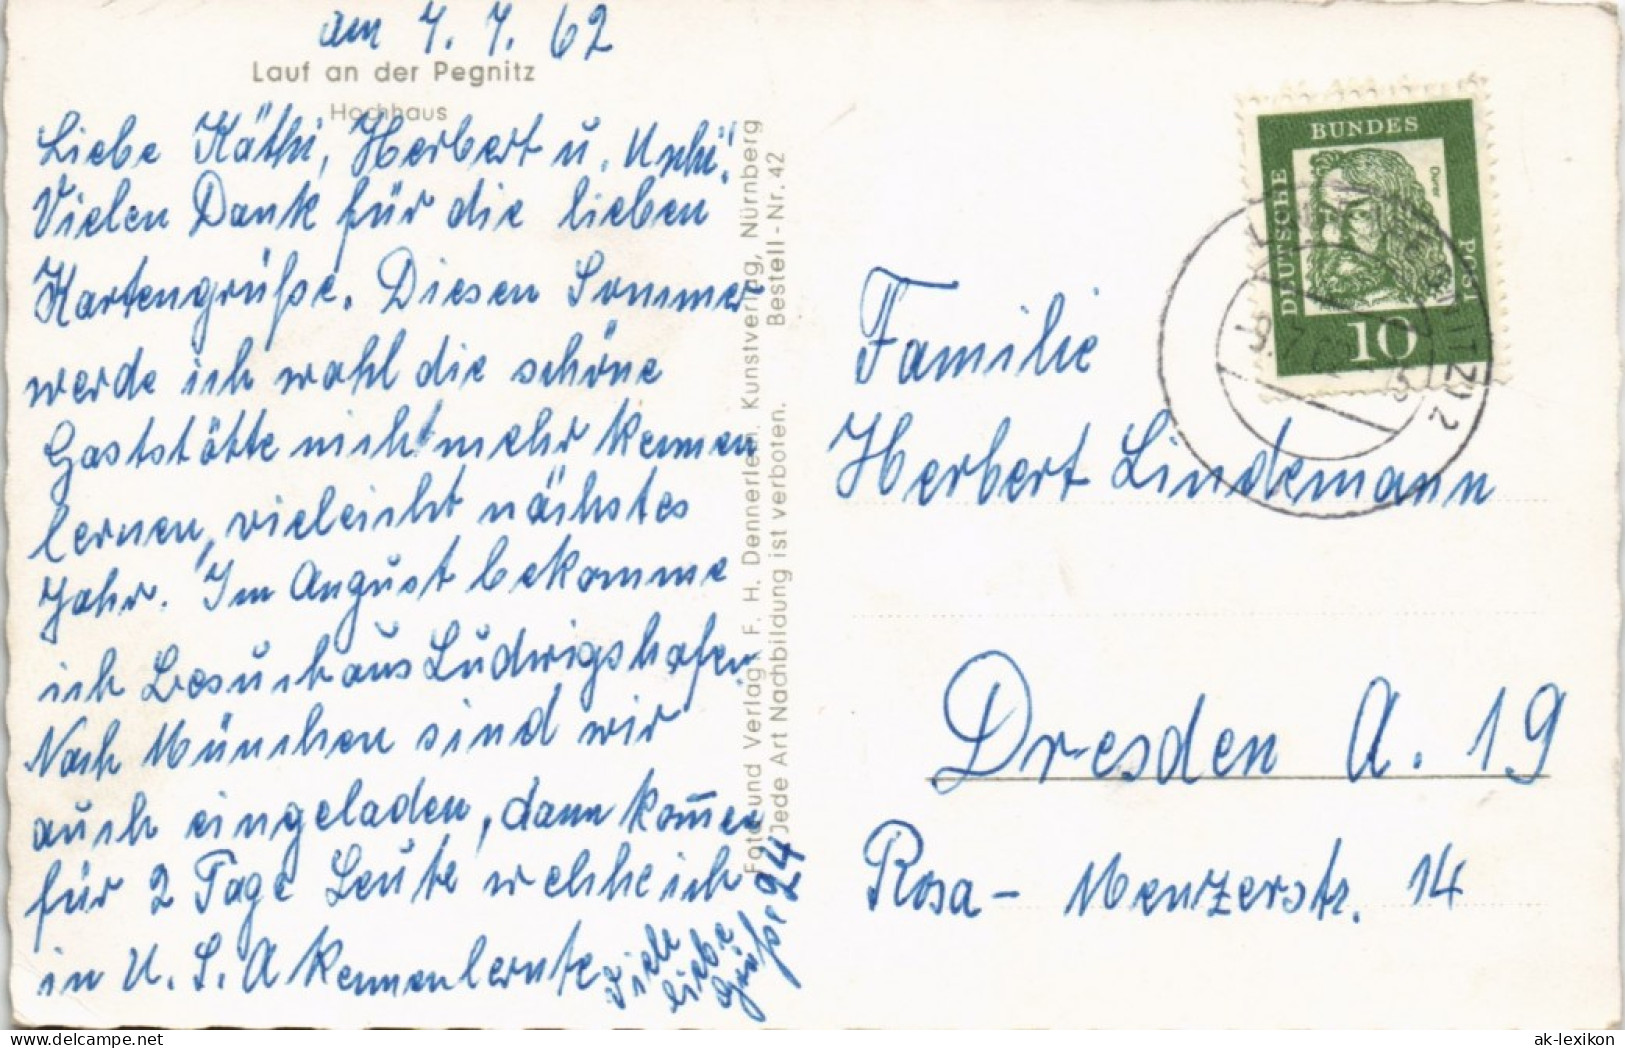 am 7. 7. 62
Lauf an der Pegnitz
Hochhaus
Liebe Käthi, Herbert u. Uschi!
Vielen Dank für die lieben
Kartengrüße. Diesen Sommer
werde ich wohl die schöne
Gaststätte nicht mehr kennen
lernen, vieleicht nächstes
Jahr. Im August bekomme
ich Besuch aus Ludwigshafen.
Nach München sind wir
auch eingeladen, dann kom̅en
für 2 Tage Leute welche ich
in U. S. A kennenlernte
Viele
liebe
Grüße
Foto und Verlag F. H. Dennerlein, Kunstverlag, Nürnberg
Jede Art Nachbildung ist verboten. Bestell-Nr. 42
24
DEUTSCHE
BUNDES
POST
Dürer
10
Familie
Herbert Lindemann
Dresden A. 19
Rosa - Menzerstr. 14
ak-lexikon